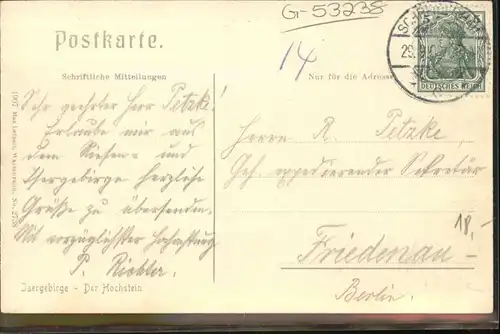 G-53238
Postkarte.
14
Schriftliche Mitteilungen
Nur für die Adresse
DEUTSCHES REICH
Sehr geehrter Herr Petzke!
Erlaube mir aus
dem Riesen- und
Isergebirge herzliche
Grüße zu übersenden.
Mit vorzüglichster Hochachtung
P.
Herrn R. Petzke,
Geh. expedierender Sekretär
18.-
Friedenau-
Berlin.
Isergebirge - Der Hochstein
1907 Max Leipelt, Warmbrunn. No.